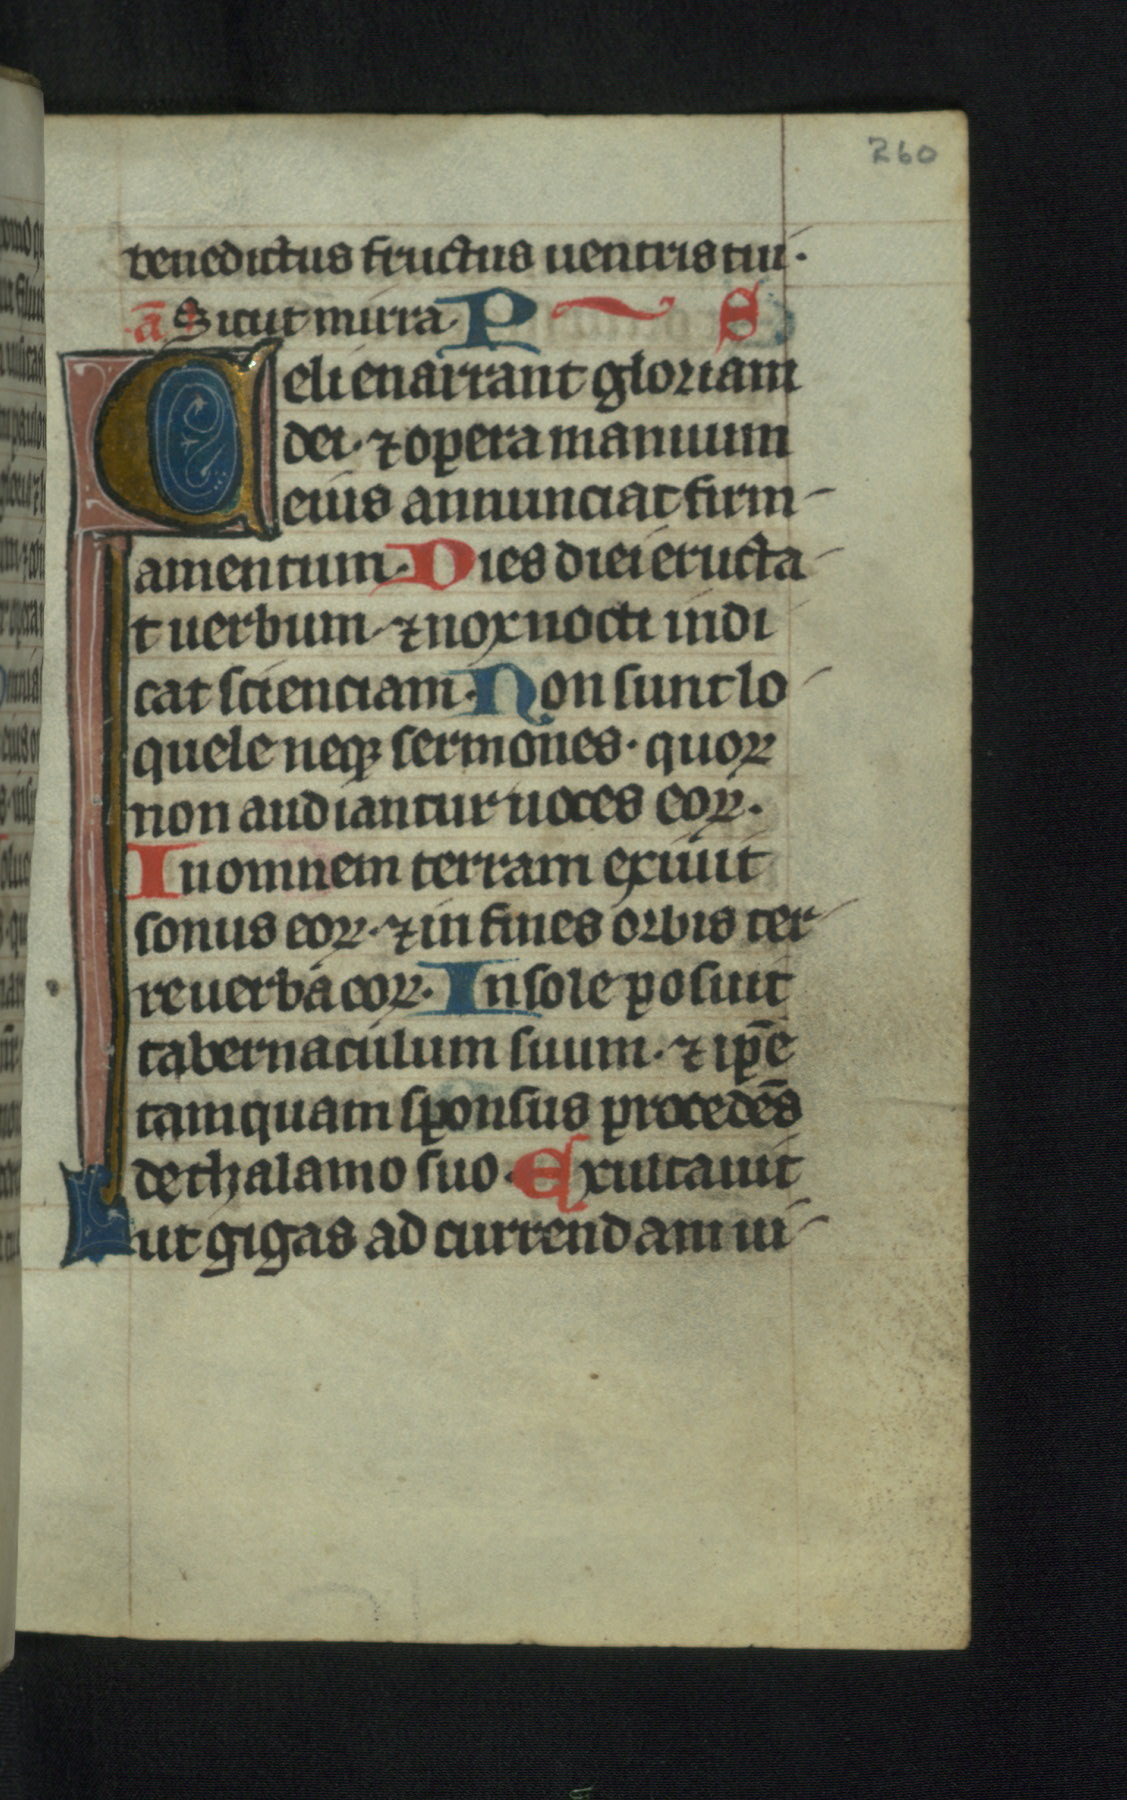 260
benedictus fructus uentris tui.
a Sicut mirra P S
Celi enarrant gloriam
dei. ⁊ opera manuum
eius annunciat firm-
amentum. Dies diei eructa-
t uerbum. ⁊ nox nocti indi
cat scienciam. Non sunt lo-
quele neqꝫ sermones. quoꝝ
non audiantur uoces eoꝝ.
In omnem terram exiuit
sonus eoꝝ. ⁊ in fines orbis ter-
re uerba eoꝝ. In sole posuit
tabernaculum suum. ⁊ ip̄e
tamquam sponsus procedēs
de thalamo suo. Exultauit
ut gigas ad currendam ui-